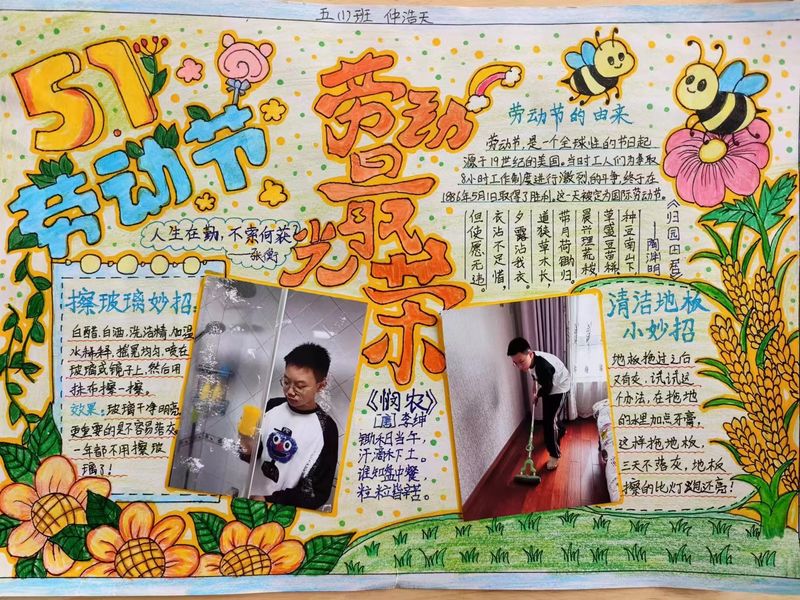 五(1)班 仲浩天
51
劳动节
劳动
最光
荣
人生在勤,不索何获?
——张衡
劳动节的由来
劳动节,是一个全球性的节日起
源于19世纪的美国。当时工人们为争取
8小时工作制度进行激烈的斗争,终于在
1886年5月1日取得了胜利。这一天被定为国际劳动节。
《归园田居》
——陶渊明
种豆南山下,
草盛豆苗稀。
晨兴理荒秽,
带月荷锄归。
道狭草木长,
夕露沾我衣。
衣沾不足惜,
但使愿无违。
擦玻璃妙招
白醋,白酒,洗洁精,加温
水稀释,摇晃均匀,喷在
玻璃或镜子上,然后用
抹布擦一擦。
效果:玻璃干净明亮,
更重要的是不容易落灰,
一年都不用擦玻
璃了!
《悯农》
[唐]李绅
锄禾日当午,
汗滴禾下土。
谁知盘中餐,
粒粒皆辛苦。
清洁地板
小妙招
地板拖过之后
又有灰,试试这
个办法,在拖地
的水里加点牙膏,
这样拖地板,
三天不落灰,地板
擦的比灯泡还亮!